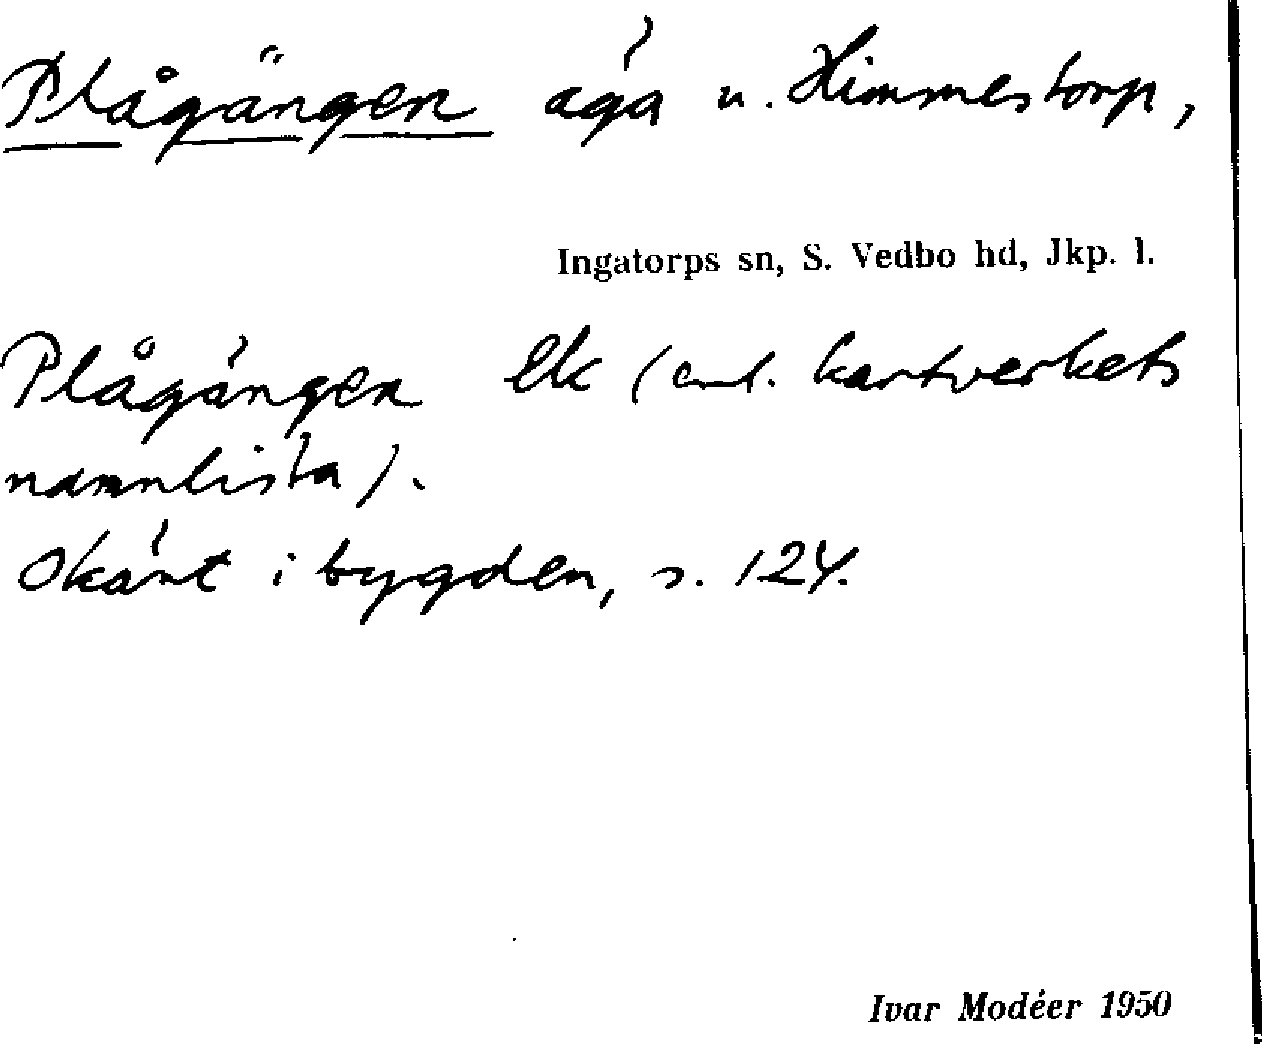 Plågången äga u. Himmestorp,
Ingatorps sn, S. Vedbo hd, Jkp. l.
Plågången Ek (enl. kartverkets
namnlista).
Okänt i bygden, s. 124.
Ivar Modéer 1950